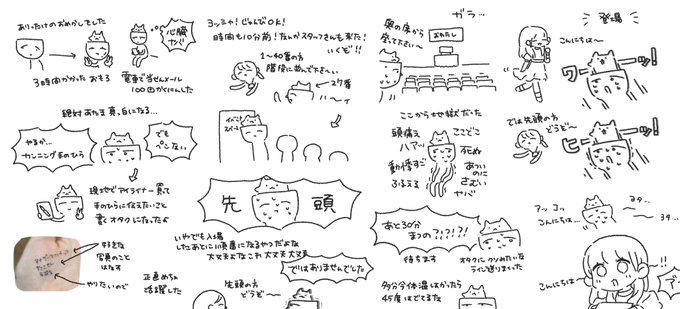 ありったけのおめかしをした
3時間かかった おもろ
心臓
ヤバ
電車で当せんメール
100回かくにんした
絶対あたま真っ白になる…
やるか…
カンニングまのひら
でも
ペンない
現地でアイライナー買って
まのひらに伝えたいこと
書くオタクになったよ
好きな
写真のこと
はなす
やりたいので
正直めちゃ
活躍した
ヨッシャ!じゅんびOK!
時間も10分前!なんかスタッフさんも来た!
いくぞ!!
1〜40番の方
階段に並んで下さ〜い
27番
は〜い
イベント
スペース
先頭
いやでも入場
したあとに順番になるやつだよな
大丈夫よなこれ 大丈夫大丈夫
ではありませんでした
先頭の方
どうぞ〜
ガラ…
奥の席から
座って下さい〜
おわたし
ここから地獄だった
頭痛え
ハアッ
動悸すご
ふるえる
ここどこ
死ぬ
あつい
のに
さむい
ヤバ
あと30分
まつの?!?!?!
待ちます
オタクにクソみたいな
ライン送りまくった
多分今体温はかったら
45度はでてるな
登場
こんにちは〜
ワーーッ!
では先頭の方
どうぞ〜
ヒーーッ!
アッ コッ
こんにちは…
ヨタ…
ヨタ…
こんにちは〜
ア